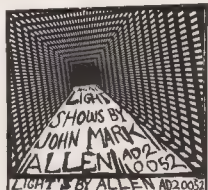 LIGHT
SHOWS BY
JOHN MARK
ALLEN AD2
0052
LIGHTS BY ALLEN AD20052